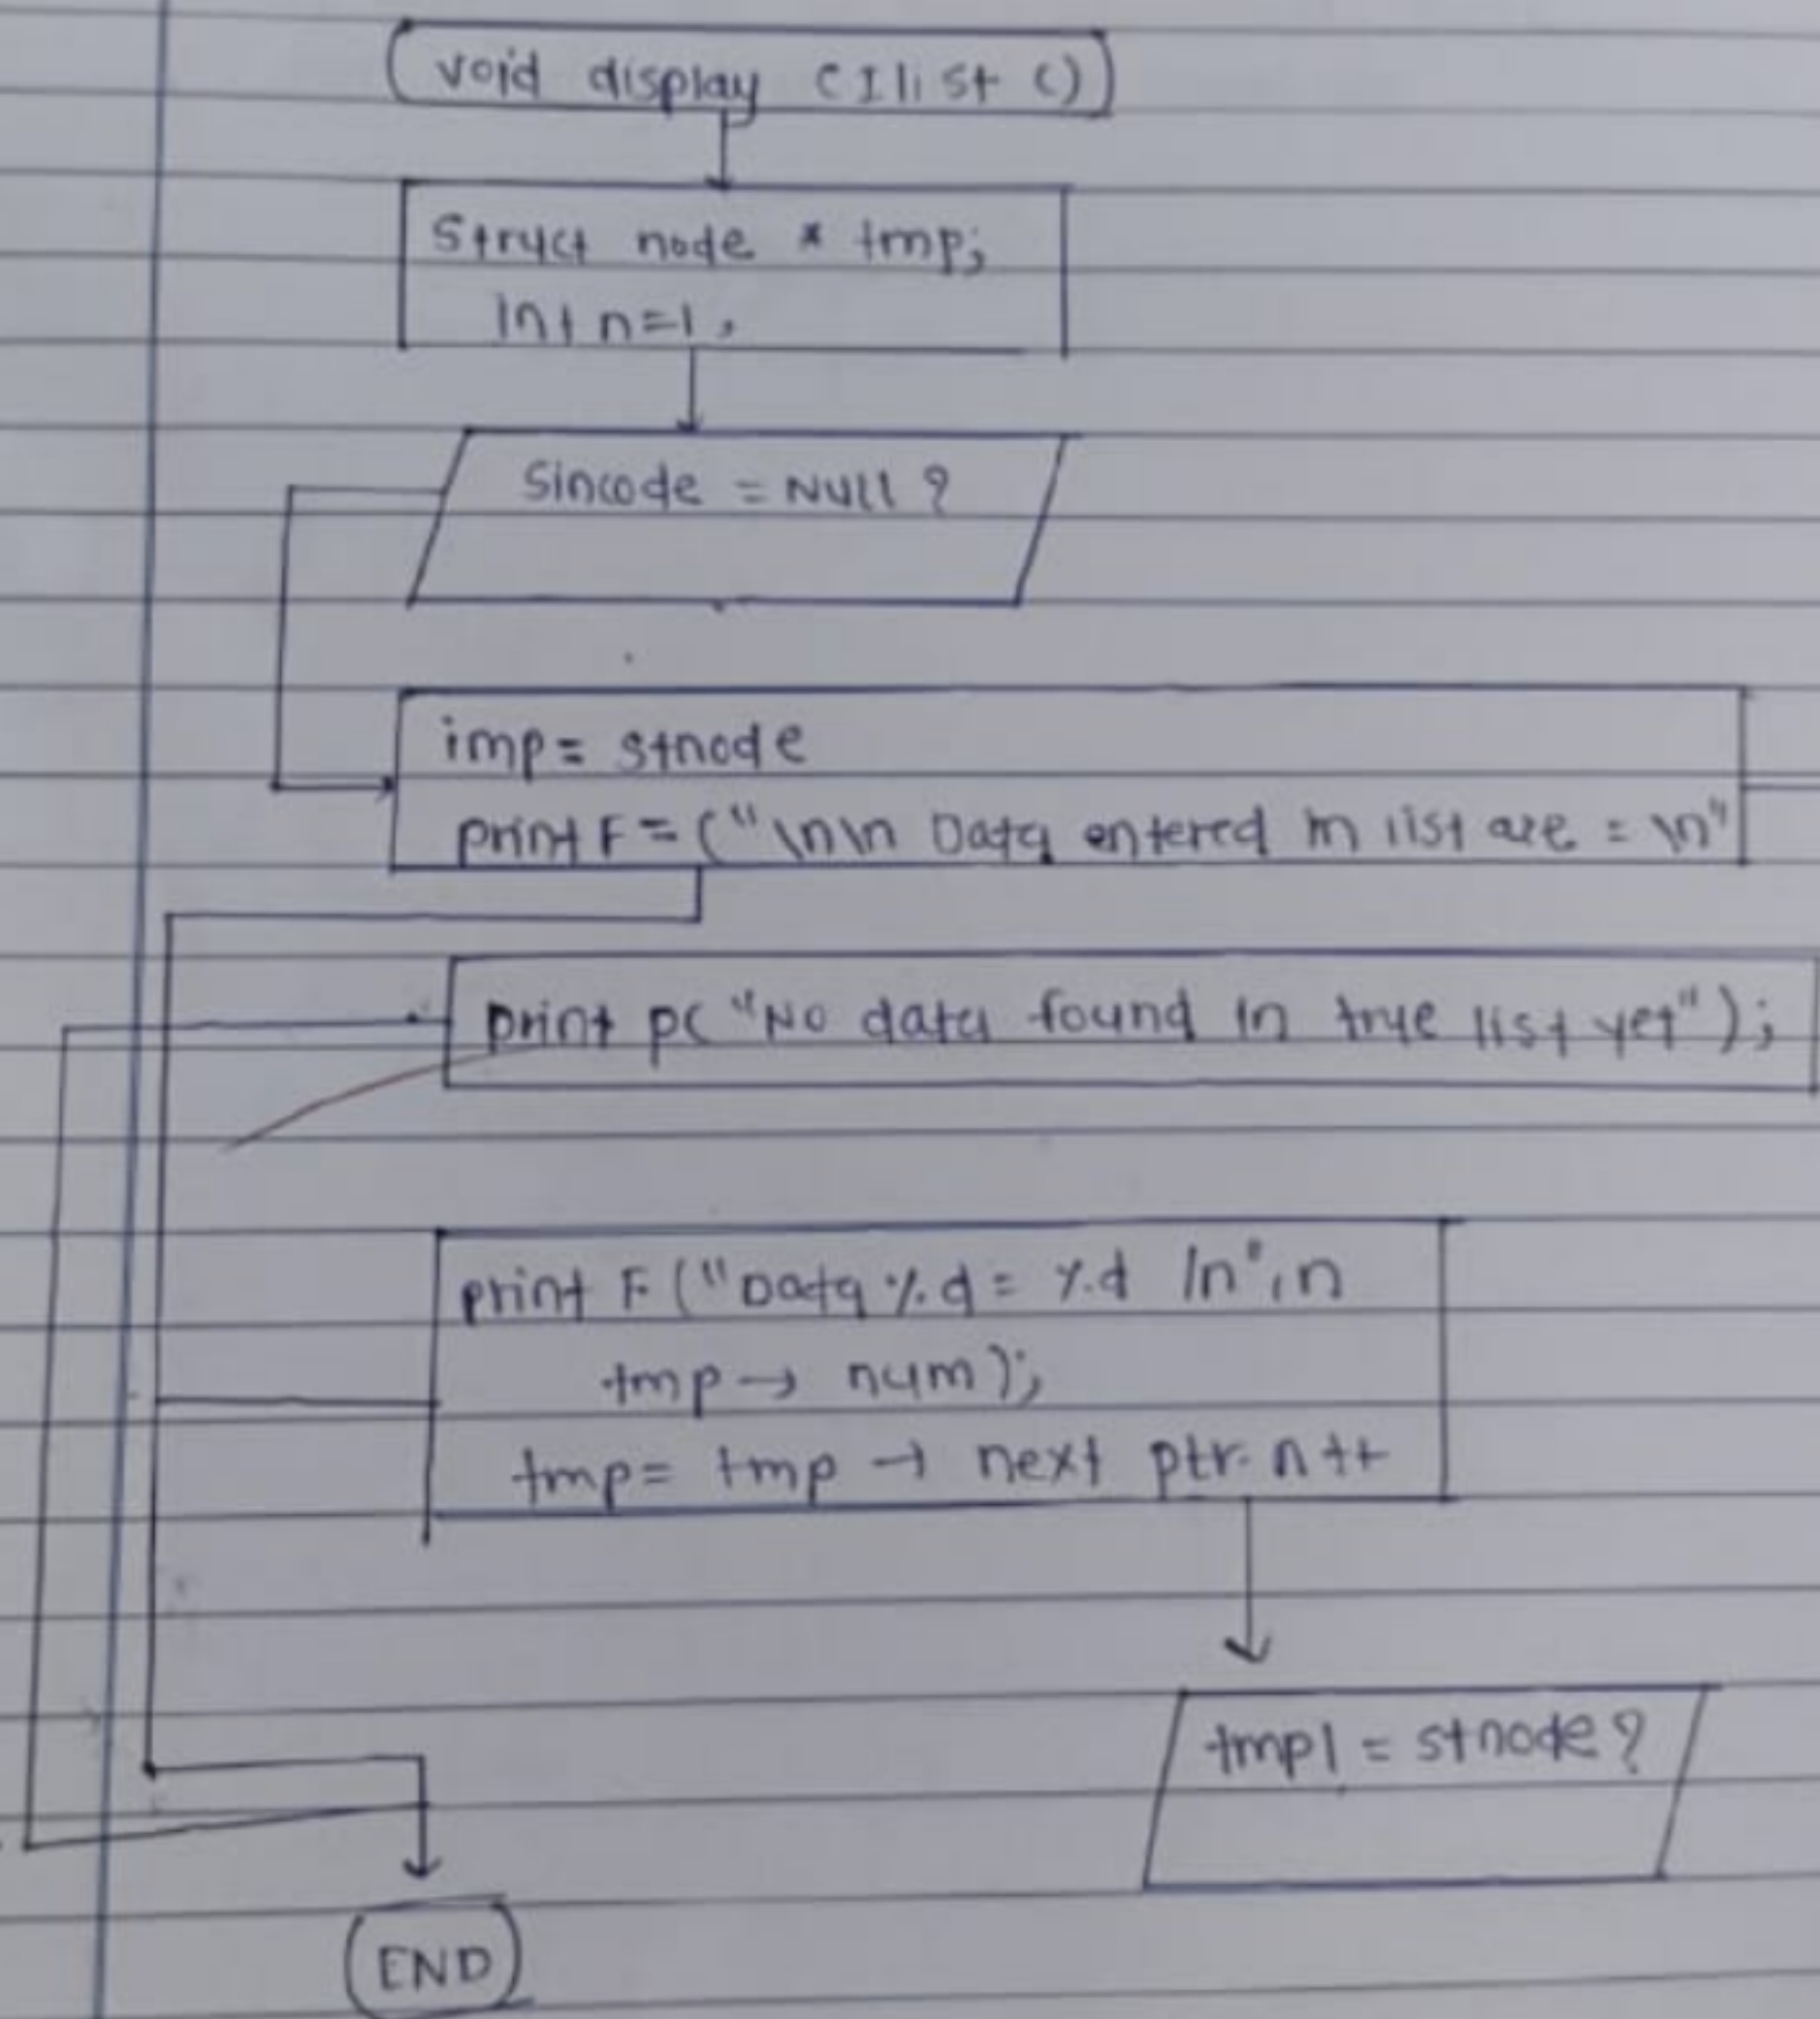 void display (Ilist ()
Struct node * tmp;
Int n=1,
Sincode = NULL ?
imp= stnode
print F = ("\n\n Data entered in list are = \n"
print p( "No data found in true list yet" );
print F ("Data %d = %d \n",n
tmp → num);
tmp= tmp → next ptr. n++
tmp1 = stnode ?
END